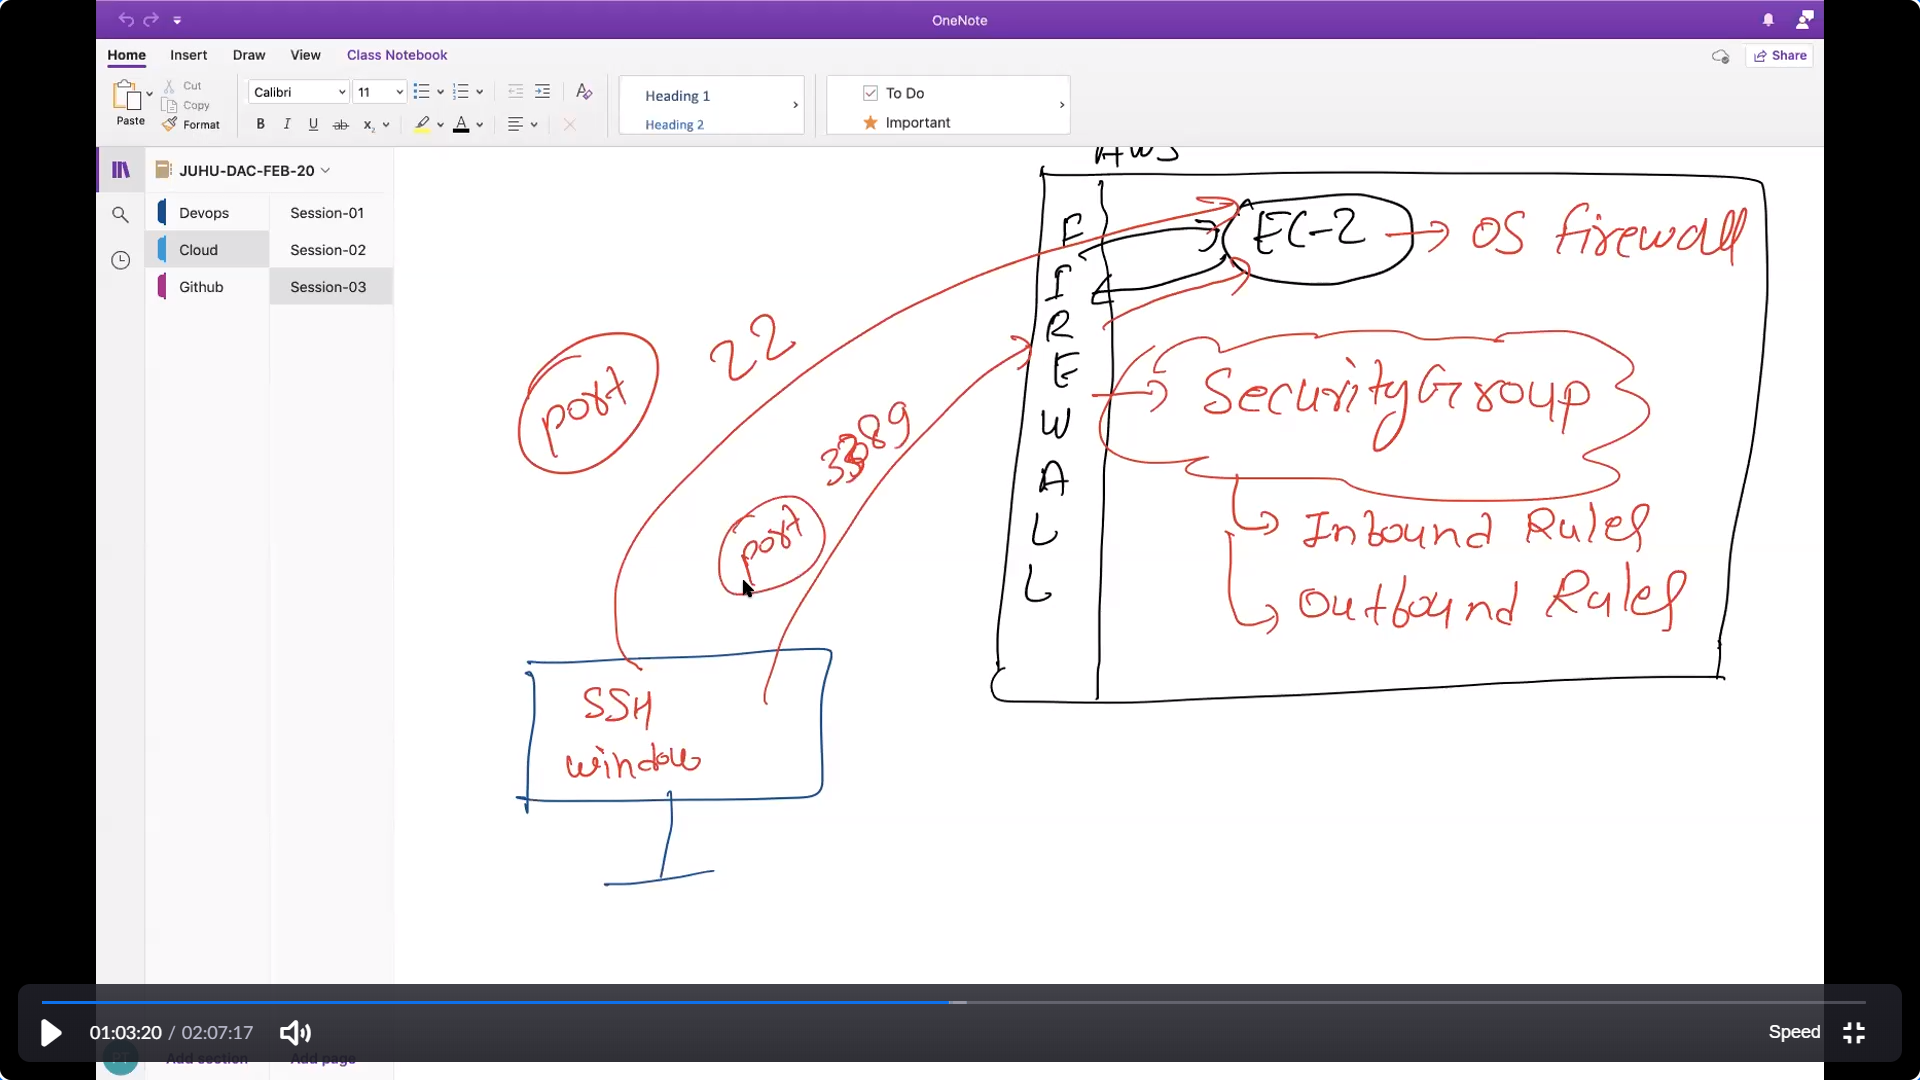 OneNote
Home Insert Draw View Class Notebook
Share
Paste
Cut
Copy
Format
Calibri 11
B I U ab x₂ A
Heading 1
Heading 2
To Do
Important
JUHU-DAC-FEB-20
Devops
Cloud
Github
Session-01
Session-02
Session-03
AWS
FIREWALL
EC-2
OS firewall
Security Group
Inbound Rules
Outbound Rules
port
22
3389
port
SSH
window
01:03:20 / 02:07:17
Speed
PT
Add section
Add page